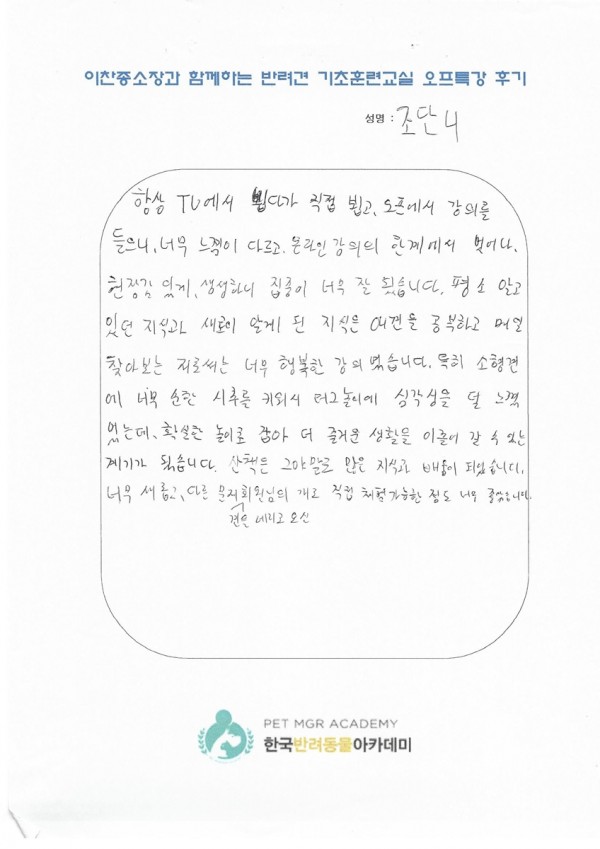 이찬종소장과 함께하는 반려견 기초훈련교실 오프특강 후기
성명 : 조단니
항상 TV에서 뵙다가 직접 뵙고, 오프에서 강의를
들으니, 너무 느낌이 다르고, 온라인 강의의 한계에서 벗어나,
현장감 있게, 생생하니 집중이 너무 잘 됬습니다. 평소 알고
있던 지식과 새로이 알게 된 지식은 애견을 공부하고 매일
찾아보는 저로써는 너무 행복한 강의였습니다. 특히 소형견
에 너무 순한 시추를 키워서 터그놀이에 심각성을 덜 느꼈
었는데, 확실한 놀이로 잡아 더 즐거운 생활을 이끌어 갈 수 있는
계기가 됬습니다. 산책은 그야말로 많은 지식과 배움이 되었습니다.
너무 새롭고, 다른 문제 회원님의 개로 직접 체험가능한 점도 너무 좋았습니다.
견을 데리고 오신
PET MGR ACADEMY
한국반려동물아카데미